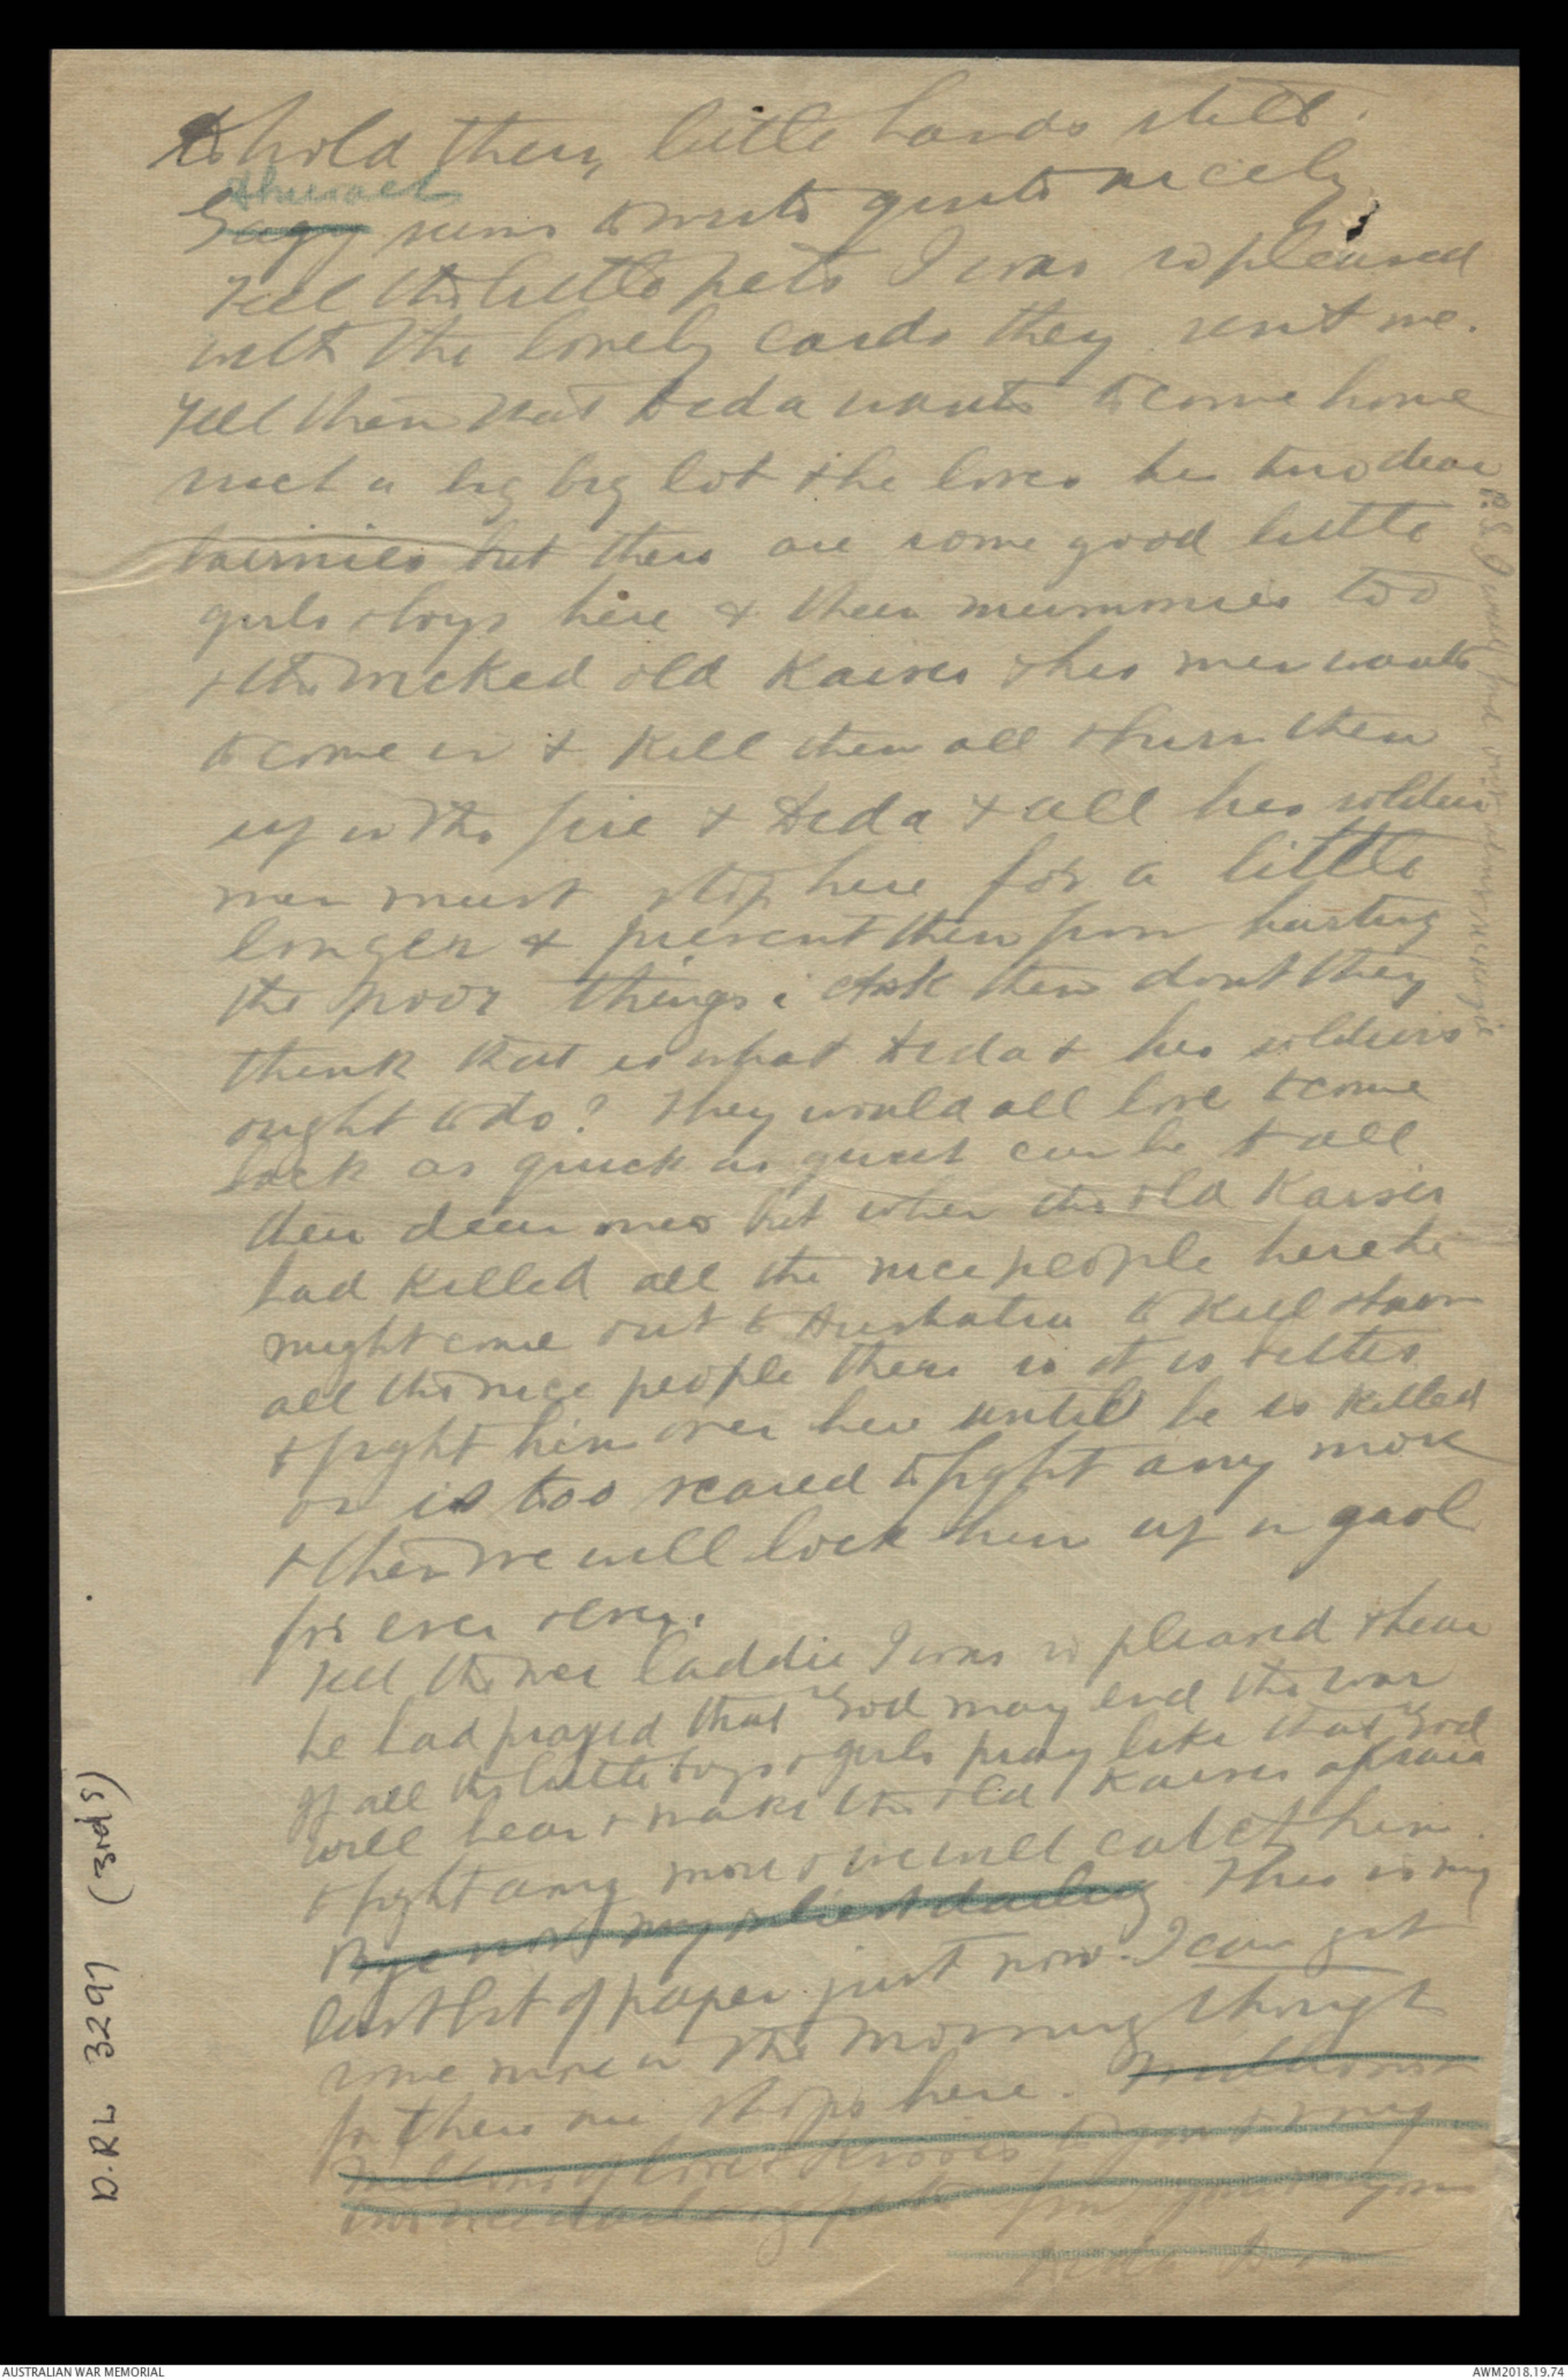 to hold their little hands still.
seems to write quite nicely
Tell the little pets I was so pleased
with the lovely cards they sent me.
Tell them that Deda wants to come home
such a big big lot & he loves his two dear
bairnies but there are some good little
girls & boys here & their mummies too
& the wicked old Kaiser & his men wants
to come in & kill them all & burn them
up in the fire & Deda & all his soldier
men must stop here for a little
longer & prevent them from hurting
the poor things. Ask them dont they
think that is what Deda & his soldiers
ought to do? They would all love to come
back as quick as quick can be to all
their dear ones but when the old Kaiser
had killed all the nice people here he
might come out to Australia to kill &
all the nice people there so it is better
to fight him over here until he is killed
or is too scared to fight any more
& then we will lock him up in gaol
for ever & ever.
Tell the wee laddie I was so pleased to hear
he had prayed that God may end the war
If all the little boys & girls pray like that God
will hear & make the old Kaiser afraid
to fight any more & we will catch him.
Bye now my darling This is my
last bit of paper just now. I can get
some more in the morning though
for there are shops here. Millions
Millions of love & kisses to you & my
two wee darling pets from your
P.S. I will find out
D.RL 3297 (3rd S)
AUSTRALIAN WAR MEMORIAL
AWM2018.19.74